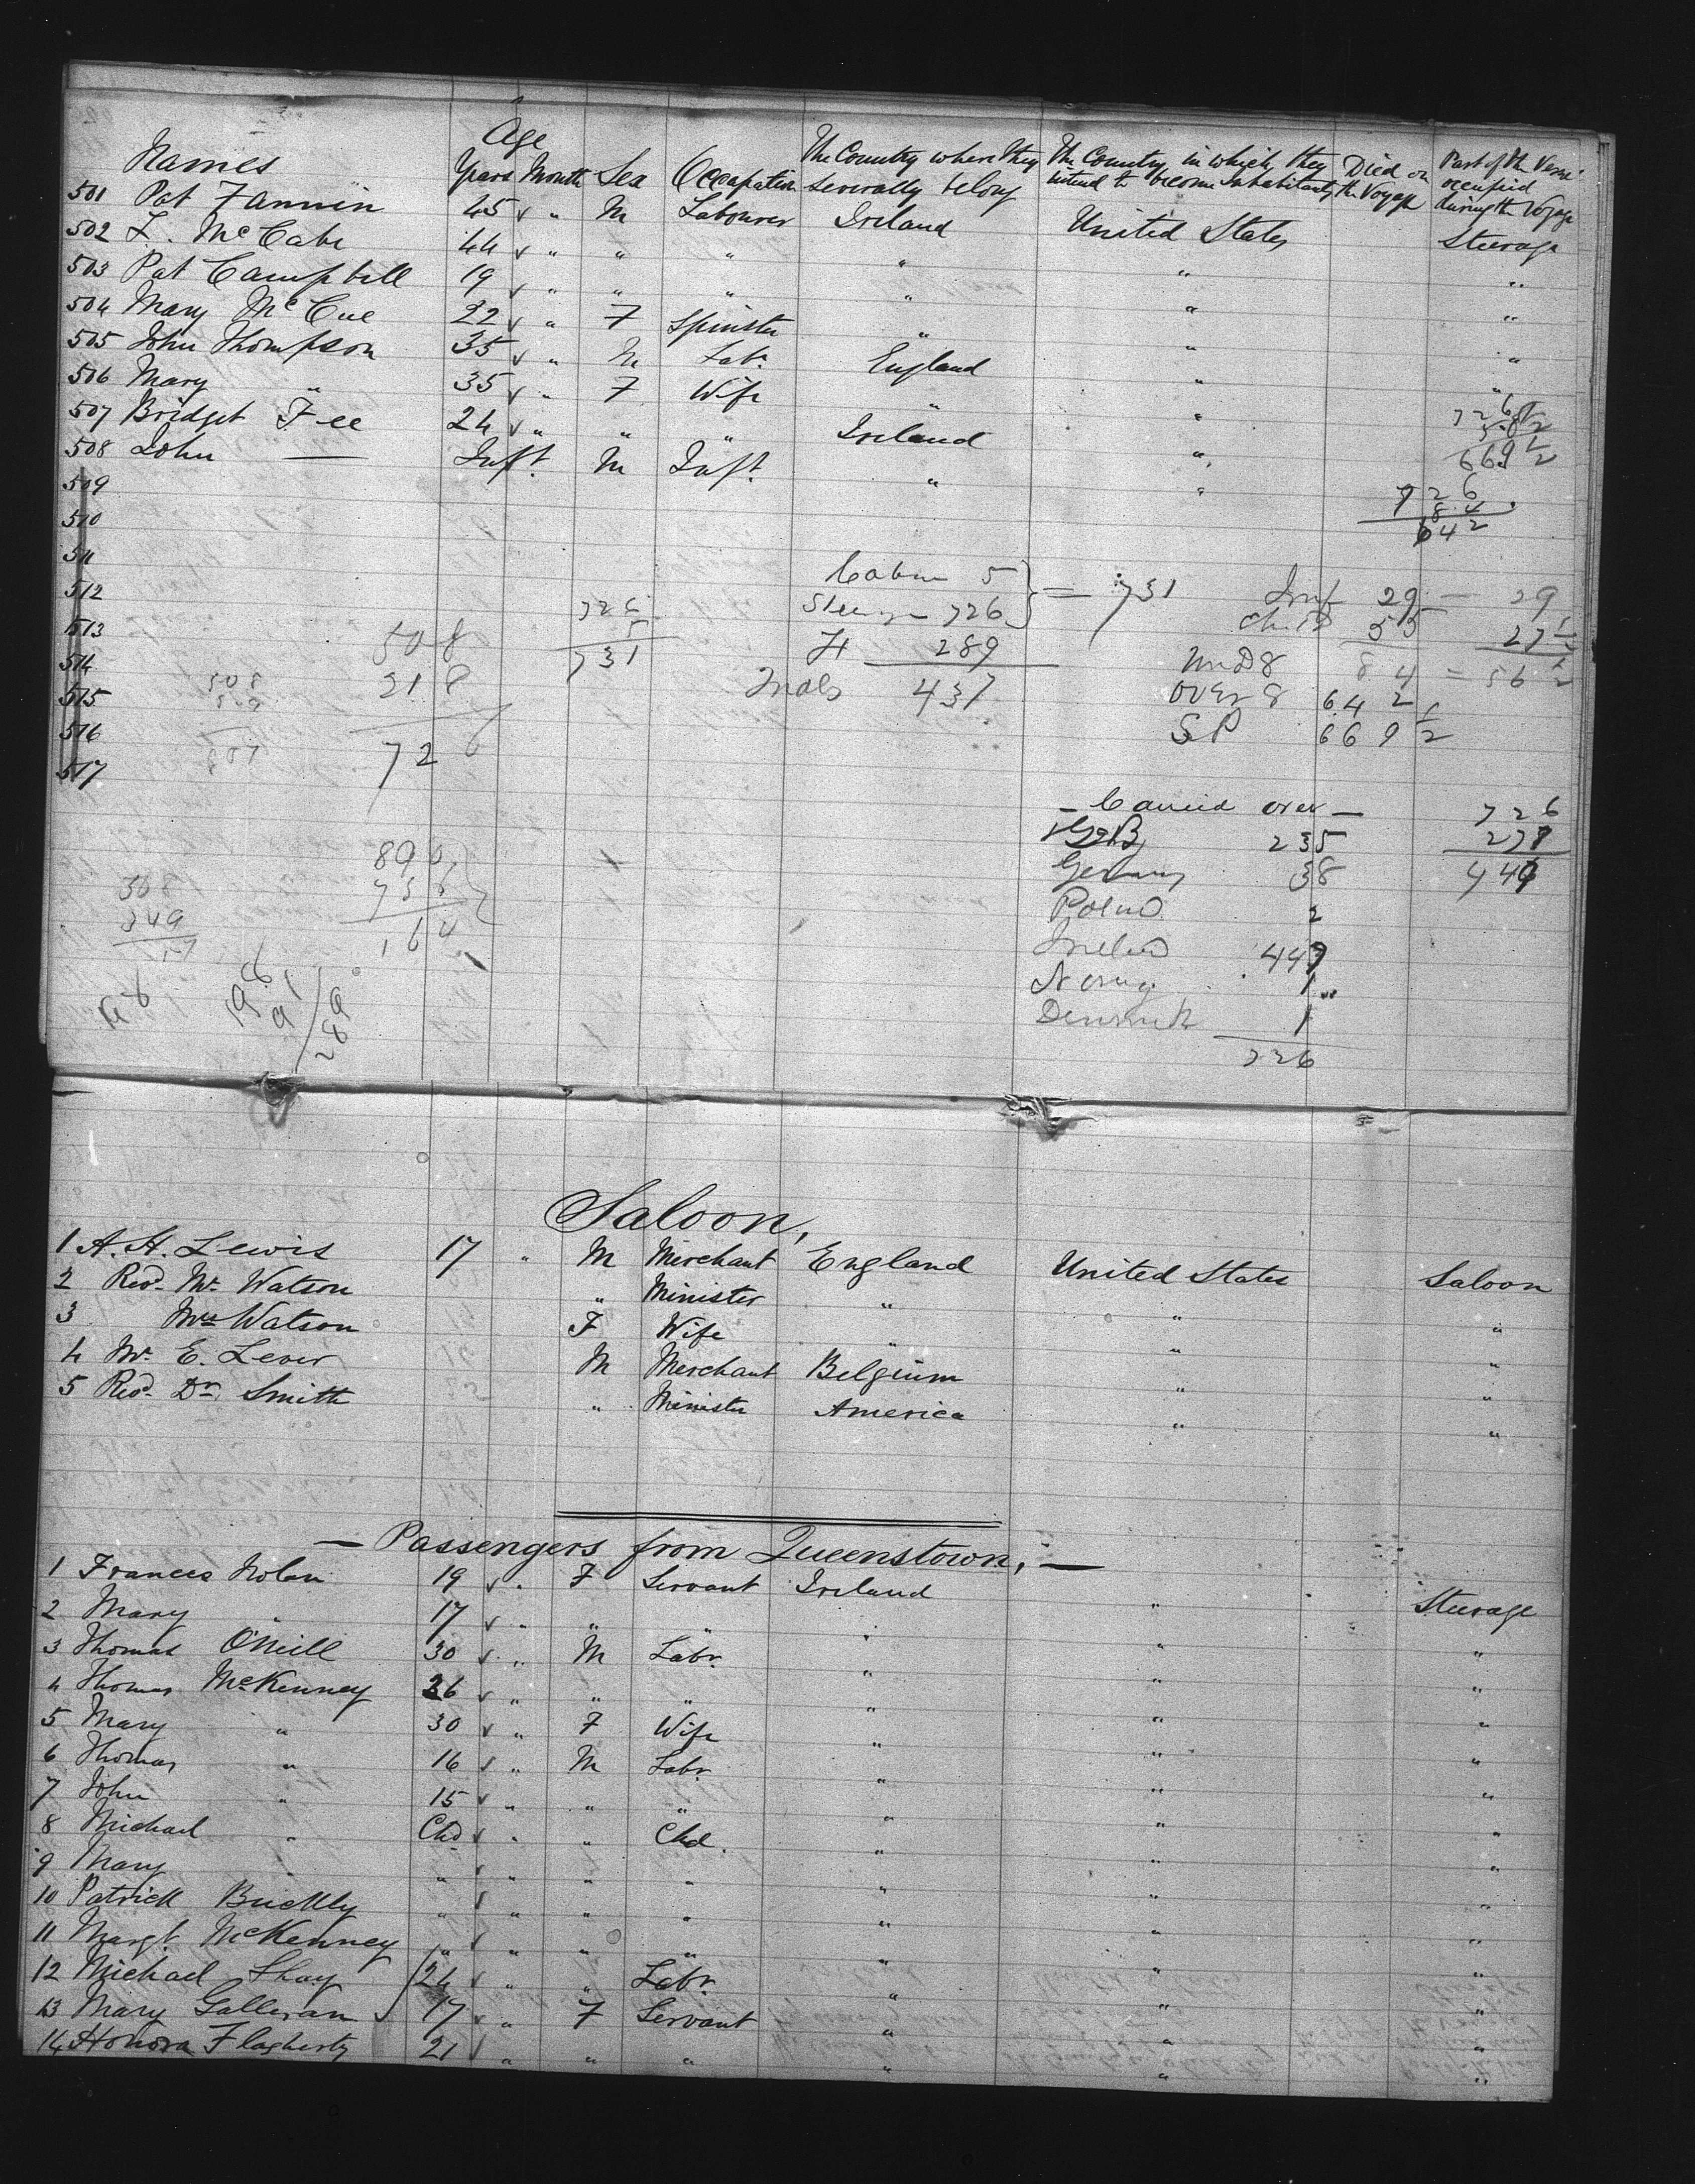 Names Age Years Month Sex Occupation The Country where they severally belong The Country in which they intend to become Inhabitants Died on the Voyage Part of the Vessel occupied during the Voyage
501 Pat Fannin 45 " M Labourer Ireland United States Steerage
502 L. McCabe 44 " " " " " "
503 Pat Campbell 19 " " " " " "
504 Mary McCue 22 " F Spinster " " "
505 John Thompson 35 " M Labr. England " "
506 Mary " 35 " F Wife " "
507 Bridget Fee 24 " " " Ireland "
508 John — Inft. M Inft. " "
669 1/2
509
726
84
642
510
511
512
513
514
515
516
517
Cabin 5
Steerage 726
= 731
H 289
Males 437
726
5
731
508
218
726
Inf 29 — 29
Child 55 27 1/2
Und 8 84 = 56 1/2
Over 8 642
SP 669 1/2
— Carried over —
726
277
449
G B 235
Germany 38
Poland 2
Ireland 449
Norway 1
Denmark 1
726
289
Saloon,
1 A. H. Lewis 17 " M Merchant England United States Saloon
2 Revd. Mr. Watson " Minister " " "
3 Mrs Watson F Wife " " "
4 Mr. E. Lever M Merchant Belgium " "
5 Revd. Dr. Smith " Minister America " "
— Passengers from Queenstown, —
1 Frances Nolan 19 " F Servant Ireland " Steerage
2 Mary " 17 " " " " " "
3 Thomas O'Neill 30 " M Labr. " " "
4 Thomas McKenney 36 " " " " " "
5 Mary " 30 " F Wife " " "
6 Thomas " 16 " M Labr. " " "
7 John " 15 " " " " " "
8 Michael " Chd " " Chd. " " "
9 Mary " " " " " " " "
10 Patrick Buckley " " " " " " "
11 Margt. McKenney " " " " " " "
12 Michael Shay 24 " " Labr. " " "
13 Mary Gallivan 17 " F Servant " " "
14 Honora Flagherty 21 " " " " " "